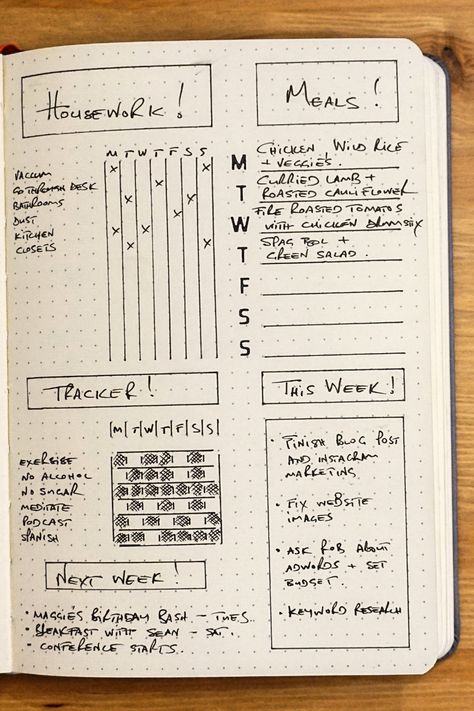 HOUSEWORK!
M T W T F S S
VACUUM
GO THROUGH DESK
BATHROOMS
DUST
KITCHEN
CLOSETS
MEALS!
M
CHICKEN, WILD RICE
+ VEGGIES.
T
CURRIED LAMB +
ROASTED CAULIFLOWER
W
FIRE ROASTED TOMATOS
WITH CHICKEN DRUMSTIX
T
SPAG BOL +
GREEN SALAD.
F
S
S
TRACKER!
|M|T|W|T|F|S|S|
EXERCISE
NO ALCOHOL
NO SUGAR
MEDITATE
PODCAST
SPANISH
THIS WEEK!
• FINISH BLOG POST
AND INSTAGRAM
MARKETING
• FIX WEBSITE
IMAGES
• ASK ROB ABOUT
ADWORDS + SET
BUDGET.
• KEYWORD RESEARCH
NEXT WEEK!
• MAGGIES BIRTHDAY BASH - TUES.
• BREAKFAST WITH SEAN - SAT.
• CONFERENCE STARTS.